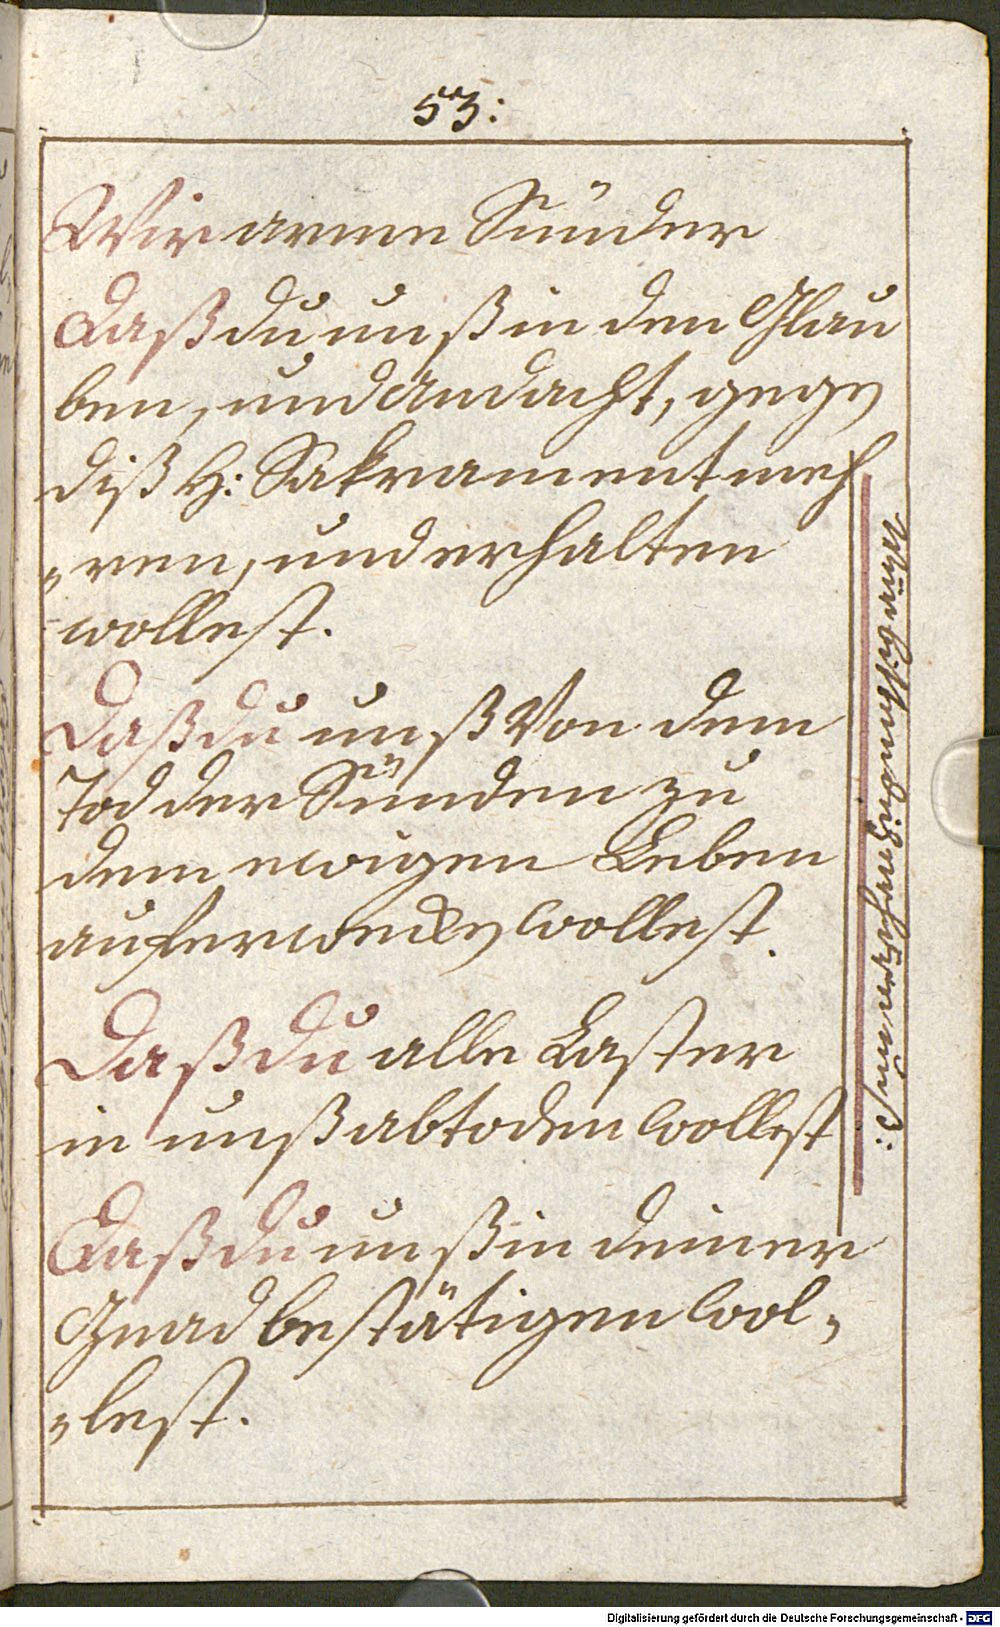 53:
Wir arme Sünder
Daß du unß in den Glau
ben, und Andacht, gegen
diß H: Sakrament meh
„ren, und erhalten
wollest.
Daß du unß Von dem
Tod der Sünden zu
dem ewigen Leben
auferwecken wollest.
Daß du alle Laster
in unß abtoden wollest
Daß du unß in deiner
Gnad bestätigen wol„
„lest.
Wür bitten dich erhöre unß:
Digitalisierung gefördert durch die Deutsche Forschungsgemeinschaft - DFG